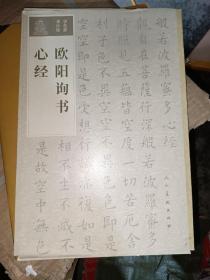 欧阳询书
心经
般若波羅蜜多心經
觀自在菩薩行深般若波羅蜜多
時照見五蘊皆空度一切苦厄舍
利子色不異空空不異色色即是
空空即是色受想行識亦復如是
相不生不滅不
是故空中無色